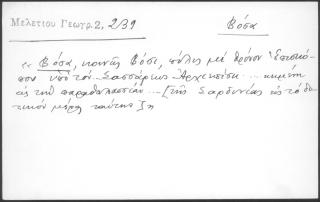 Μελετίου Γεωγρ. 2, 2/39
Βόσα
« Βόσα, κοινῶς Βόσι, πόλις μὲ θρόνον Ἐπισκό-
που ὑπὸ τὸν Σασσάρεως Ἀρχιεπίσκ. ... κειμένη
εἰς τὴν παραθαλασσίαν ... [τῆς Σαρδηνίας εἰς τὸ δυ-
τικὸν μέρος ταύτης] »